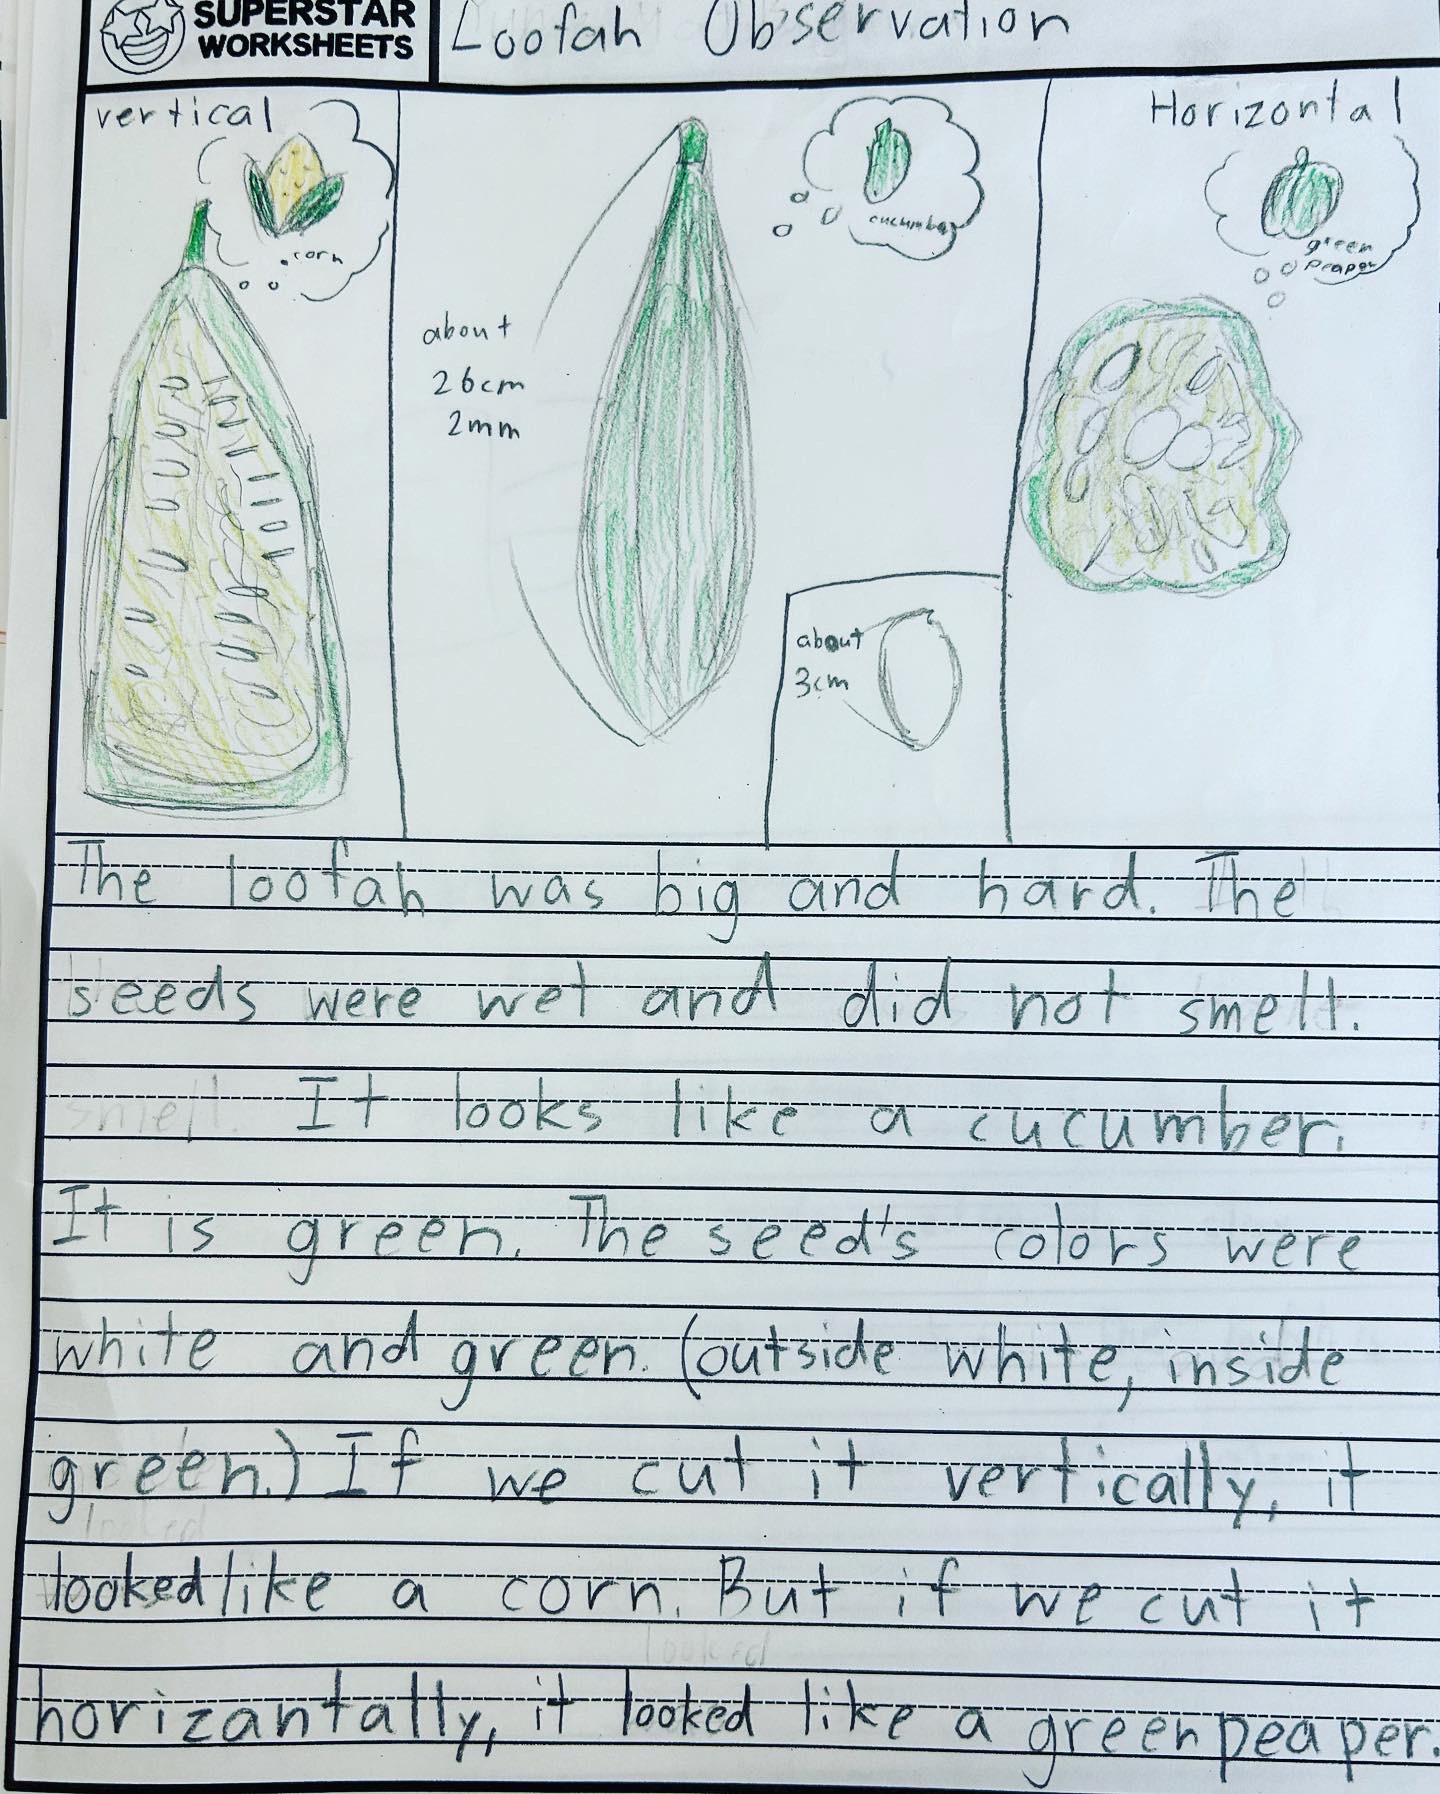 SUPERSTAR
WORKSHEETS
Loofah Observation
vertical
corn
about
26cm
2mm
cucumber
about
3cm
Horizontal
green
peaper
The loofah was big and hard. The
seeds were wet and did not smell.
smell. It looks like a cucumber.
It is green. The seed's colors were
white and green. (outside white, inside
green.) If we cut it vertically, it
looked like a corn. But if we cut it
horizantally, it looked like a green peaper.